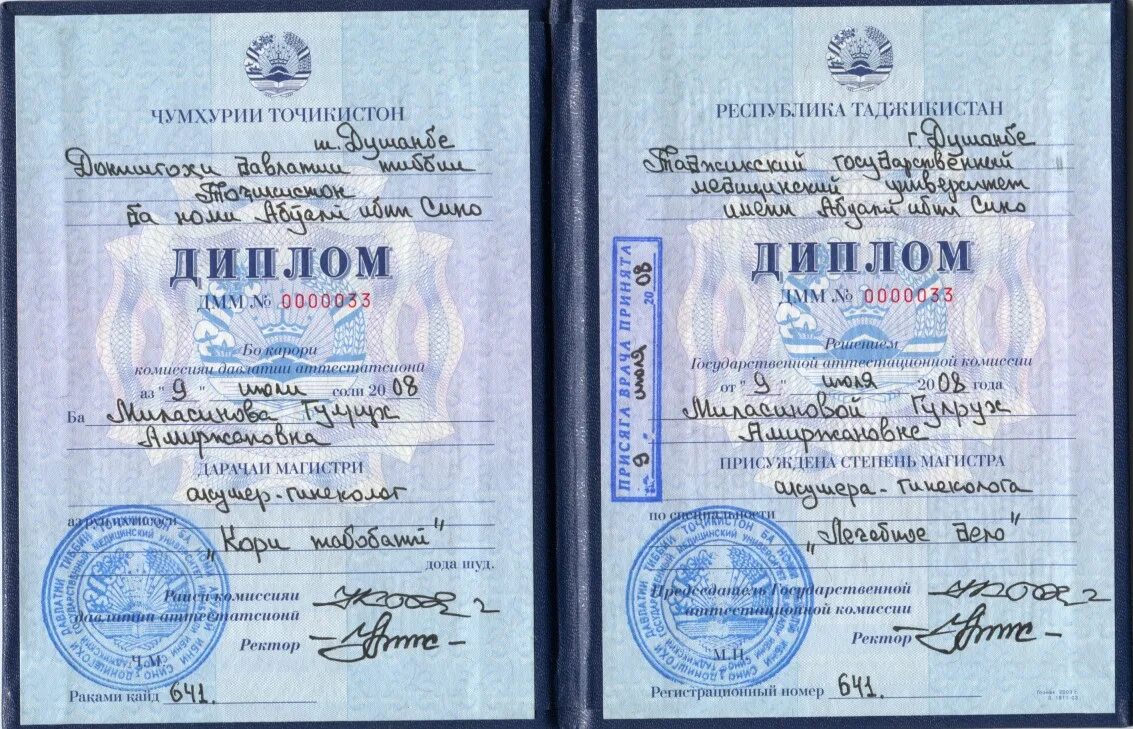 ҶУМҲУРИИ ТОҶИКИСТОН
ш. Душанбе
Донишгоҳи давлатии тиббии
Тоҷикистон
ба номи Абӯалӣ ибни Сино
ДИПЛОМ
ДММ № 0000033
Бо қарори
комиссияи давлатии аттестатсионӣ
аз "9" июли соли 2008
Ба Миласинова Гулруж
Амиржановна
ДАРАҶАИ МАГИСТРИ
акушер-гинеколог
аз рӯи ихтисоси
"Кори табобатӣ"
дода шуд.
Раиси комиссияи
давлатии аттестатсионӣ
Ректор
Ҷ.М.
Рақами қайд 641.
РЕСПУБЛИКА ТАДЖИКИСТАН
г. Душанбе
Таджикский государственный
медицинский университет
имени Абуали ибни Сино
ДИПЛОМ
ДММ № 0000033
Решением
Государственной аттестационной комиссии
от "9" июля 2008 года
Миласиновой Гулруж
Амиржановне
ПРИСУЖДЕНА СТЕПЕНЬ МАГИСТРА
акушера-гинеколога
по специальности
"Лечебное дело"
Председатель Государственной
аттестационной комиссии
Ректор
М.П.
Регистрационный номер 641.
ПРИСЯГА ВРАЧА ПРИНЯТА
"9" июля 2008